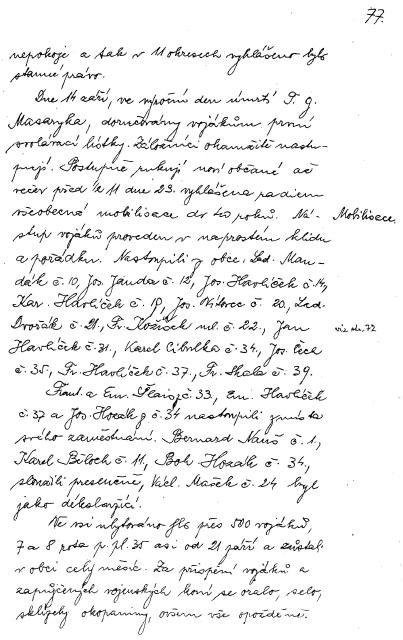 77.
nepokoje a tak v 11 okresech vyhlášeno bylo
stanné právo.
Dne 14 září, ve výroční den úmrtí T. G.
Masaryka, doručovány vojákům první
svolávací lístky. Záložníci okamžitě nastu-
pují. Postupně rukují noví občané až
večer před ½ 11 dne 23. vyhlášena radiem
všeobecná mobilisace do 40 roků. Ná-
Mobilisace.
stup vojáků proveden v naprostém klidu
a pořádku. Nastoupili z obce: Lad. Man-
dák č. 10, Jos. Janda č. 12, Jos. Havlíček č. 14,
Kar. Havlíček č. 19, Jos. Vitovec č. 20, Lad.
Dvořák č. 21, Fr. Kožíšek ml. č. 22., Jan
viz str. 72
Havlíček č. 31., Karel Cibulka č. 34., Jos. Čech
č. 35, Fr. Havlíček č. 37., Fr. Skala č. 39.
Frant. a Em. č. 33, Em. Havlíček
č. 37 a Jos. Hozák z č. 34 nastoupili z místa
svého zaměstnání. Bernard č. 1.,
Karel Běloch č. 11., Boh. Hozák č. 34.,
sloužili presenčně, Václ. Mašek č. 24 byl
jako déle sloužící.
Ve vsi ubytováno bylo přes 500 vojáků,
7 a 8 rota p. pl. 35 asi od 21 září a zůstali
v obci celý měsíc. Za přispění vojáků a
zapůjčených vojenských koní se oralo, selo,
sklízely okopaniny, ovšem vše opožděně.